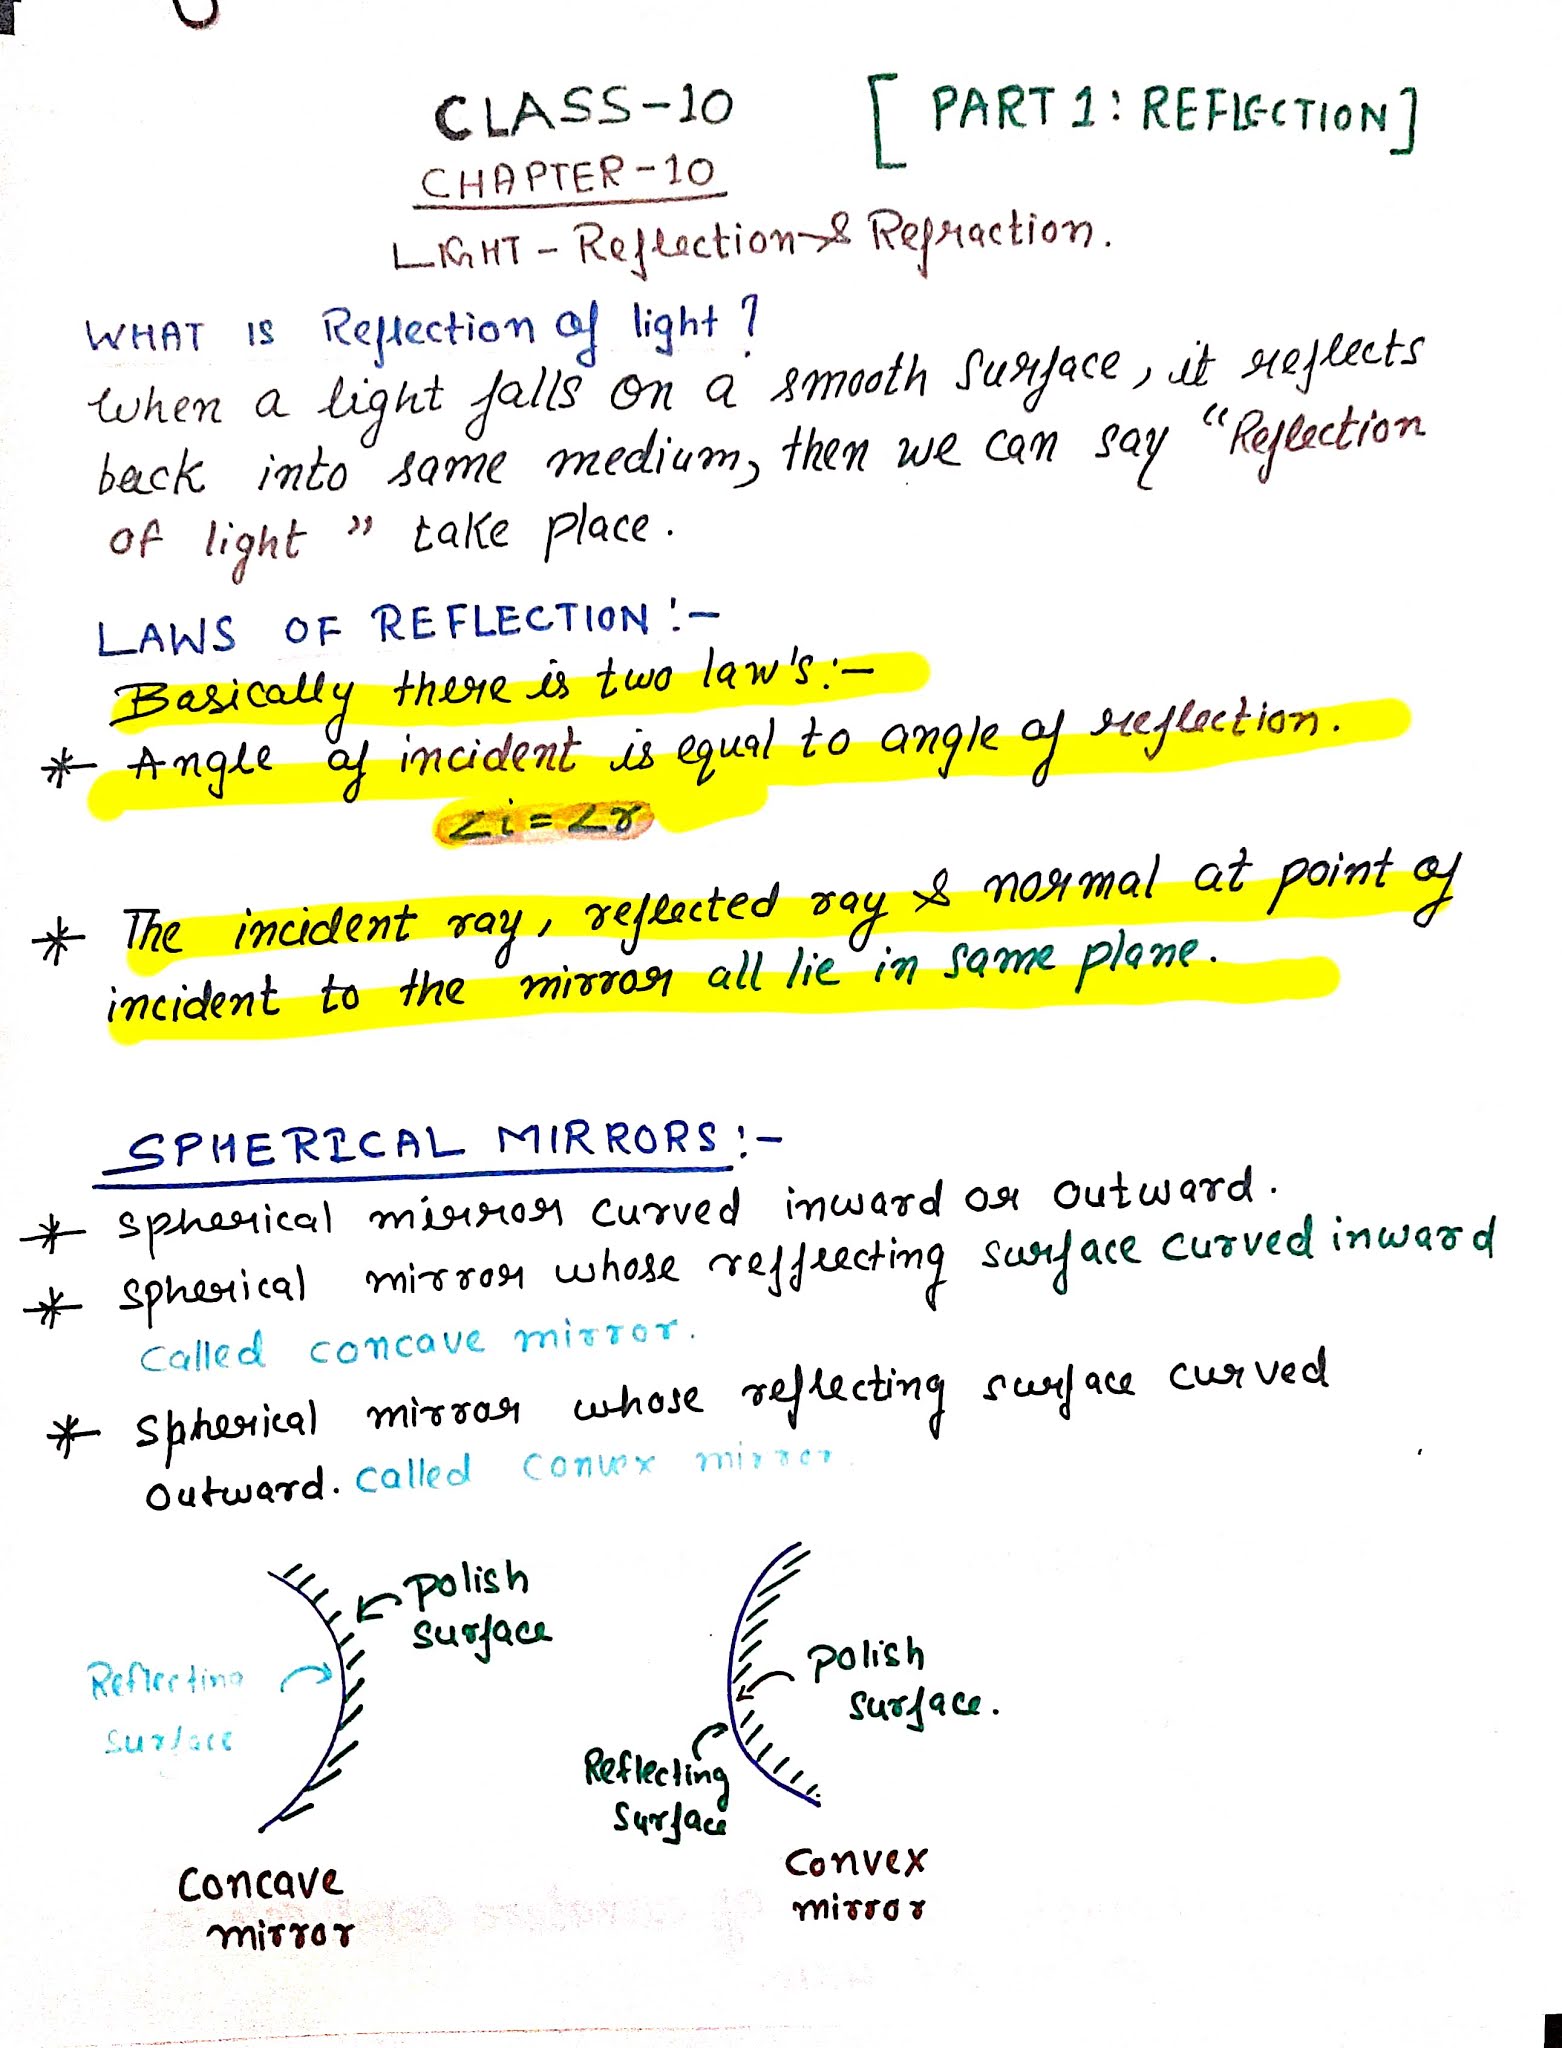 CLASS-10 [PART 1: REFLECTION]
CHAPTER-10
LIGHT - Reflection & Refraction.
WHAT IS Reflection of light?
When a light falls on a smooth surface, it reflects
back into same medium, then we can say "Reflection
of light" take place.
LAWS OF REFLECTION:-
Basically there is two law's:-
* Angle of incident is equal to angle of reflection.
∠i=∠r
* The incident ray, reflected ray & normal at point of
incident to the mirror all lie in same plane.
SPHERICAL MIRRORS:-
* Spherical mirror curved inward or outward.
* Spherical mirror whose refflecting surface curved inward
called concave mirror.
* Spherical mirror whose reflecting surface curved
outward. called convex mirror.
Polish
surface
Reflecting
Surface
Concave
mirror
Polish
surface.
Reflecting
Surface
Convex
mirror